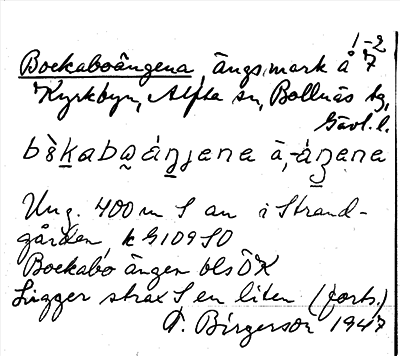 1-2
Bockaboängena, ängsmark å 7
Kyrkbyn, Alfta sn, Bollnäs tg,
Gävl. l.
Ung. 400 m S an i Strand-
gården, k G 109 SO
Bockabo ängen bls ÖK
Ligger strax S en liten (forts.)
Birgerson 1947